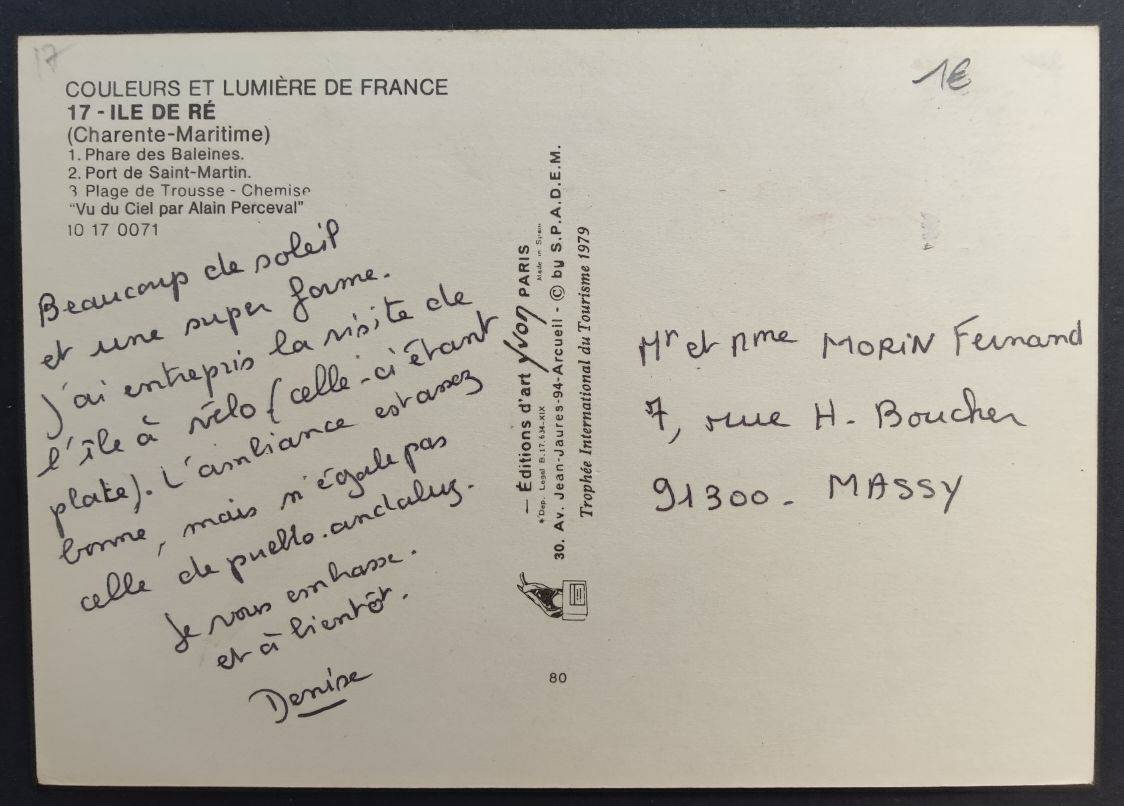 17
1€
COULEURS ET LUMIÈRE DE FRANCE
17 - ILE DE RÉ
(Charente-Maritime)
1. Phare des Baleines.
2. Port de Saint-Martin.
3 Plage de Trousse - Chemise
"Vu du Ciel par Alain Perceval"
10 17 0071
Beaucoup de soleil
et une super forme.
J'ai entrepris la visite de
l'île à vélo (celle-ci étant
plate). L'ambiance est assez
bonne, mais n'égale pas
celle de pueblo.andaluz.
Je vous embrasse.
et à bientôt.
Denise
— Éditions d'art yvon PARIS
Made in Spain
* Dep. Legal B. 17.634-XIX
30. Av. Jean-Jaures-94-Arcueil - © by S.P.A.D.E.M.
Trophée International du Tourisme 1979
80
Mr et Mme MORIN Fernand
7, rue H. Boucher
91300 - MASSY